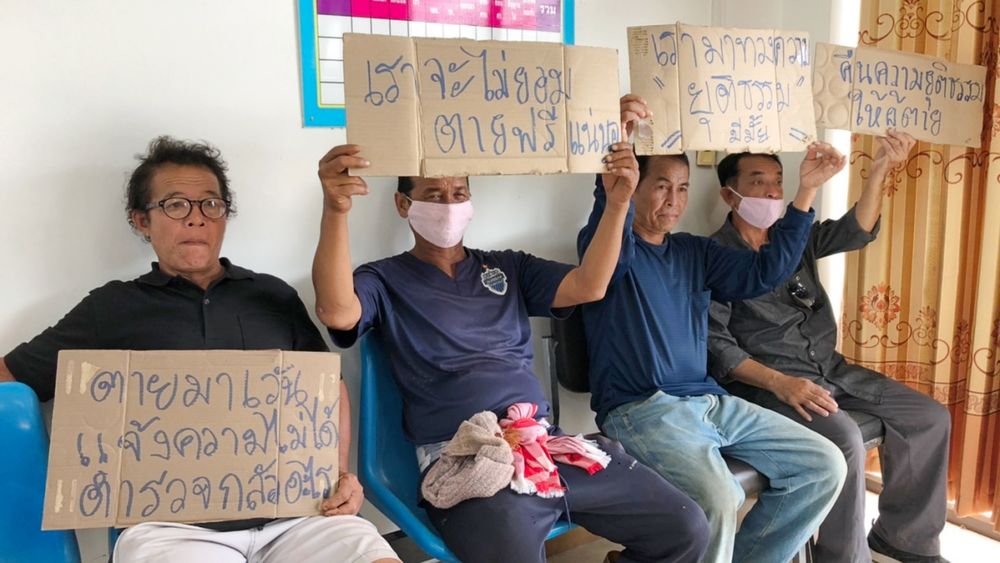 รวม
เราจะไม่ยอม
ตายฟรี แน่นอน
เรามาทวงความ
"ยุติธรรม"
มีมั้ย
คืนความยุติธรรม
ให้ผู้ตาย
ตายมา เวัน
แจ้งความไม่ได้
ตำรวจกลัวอะไร